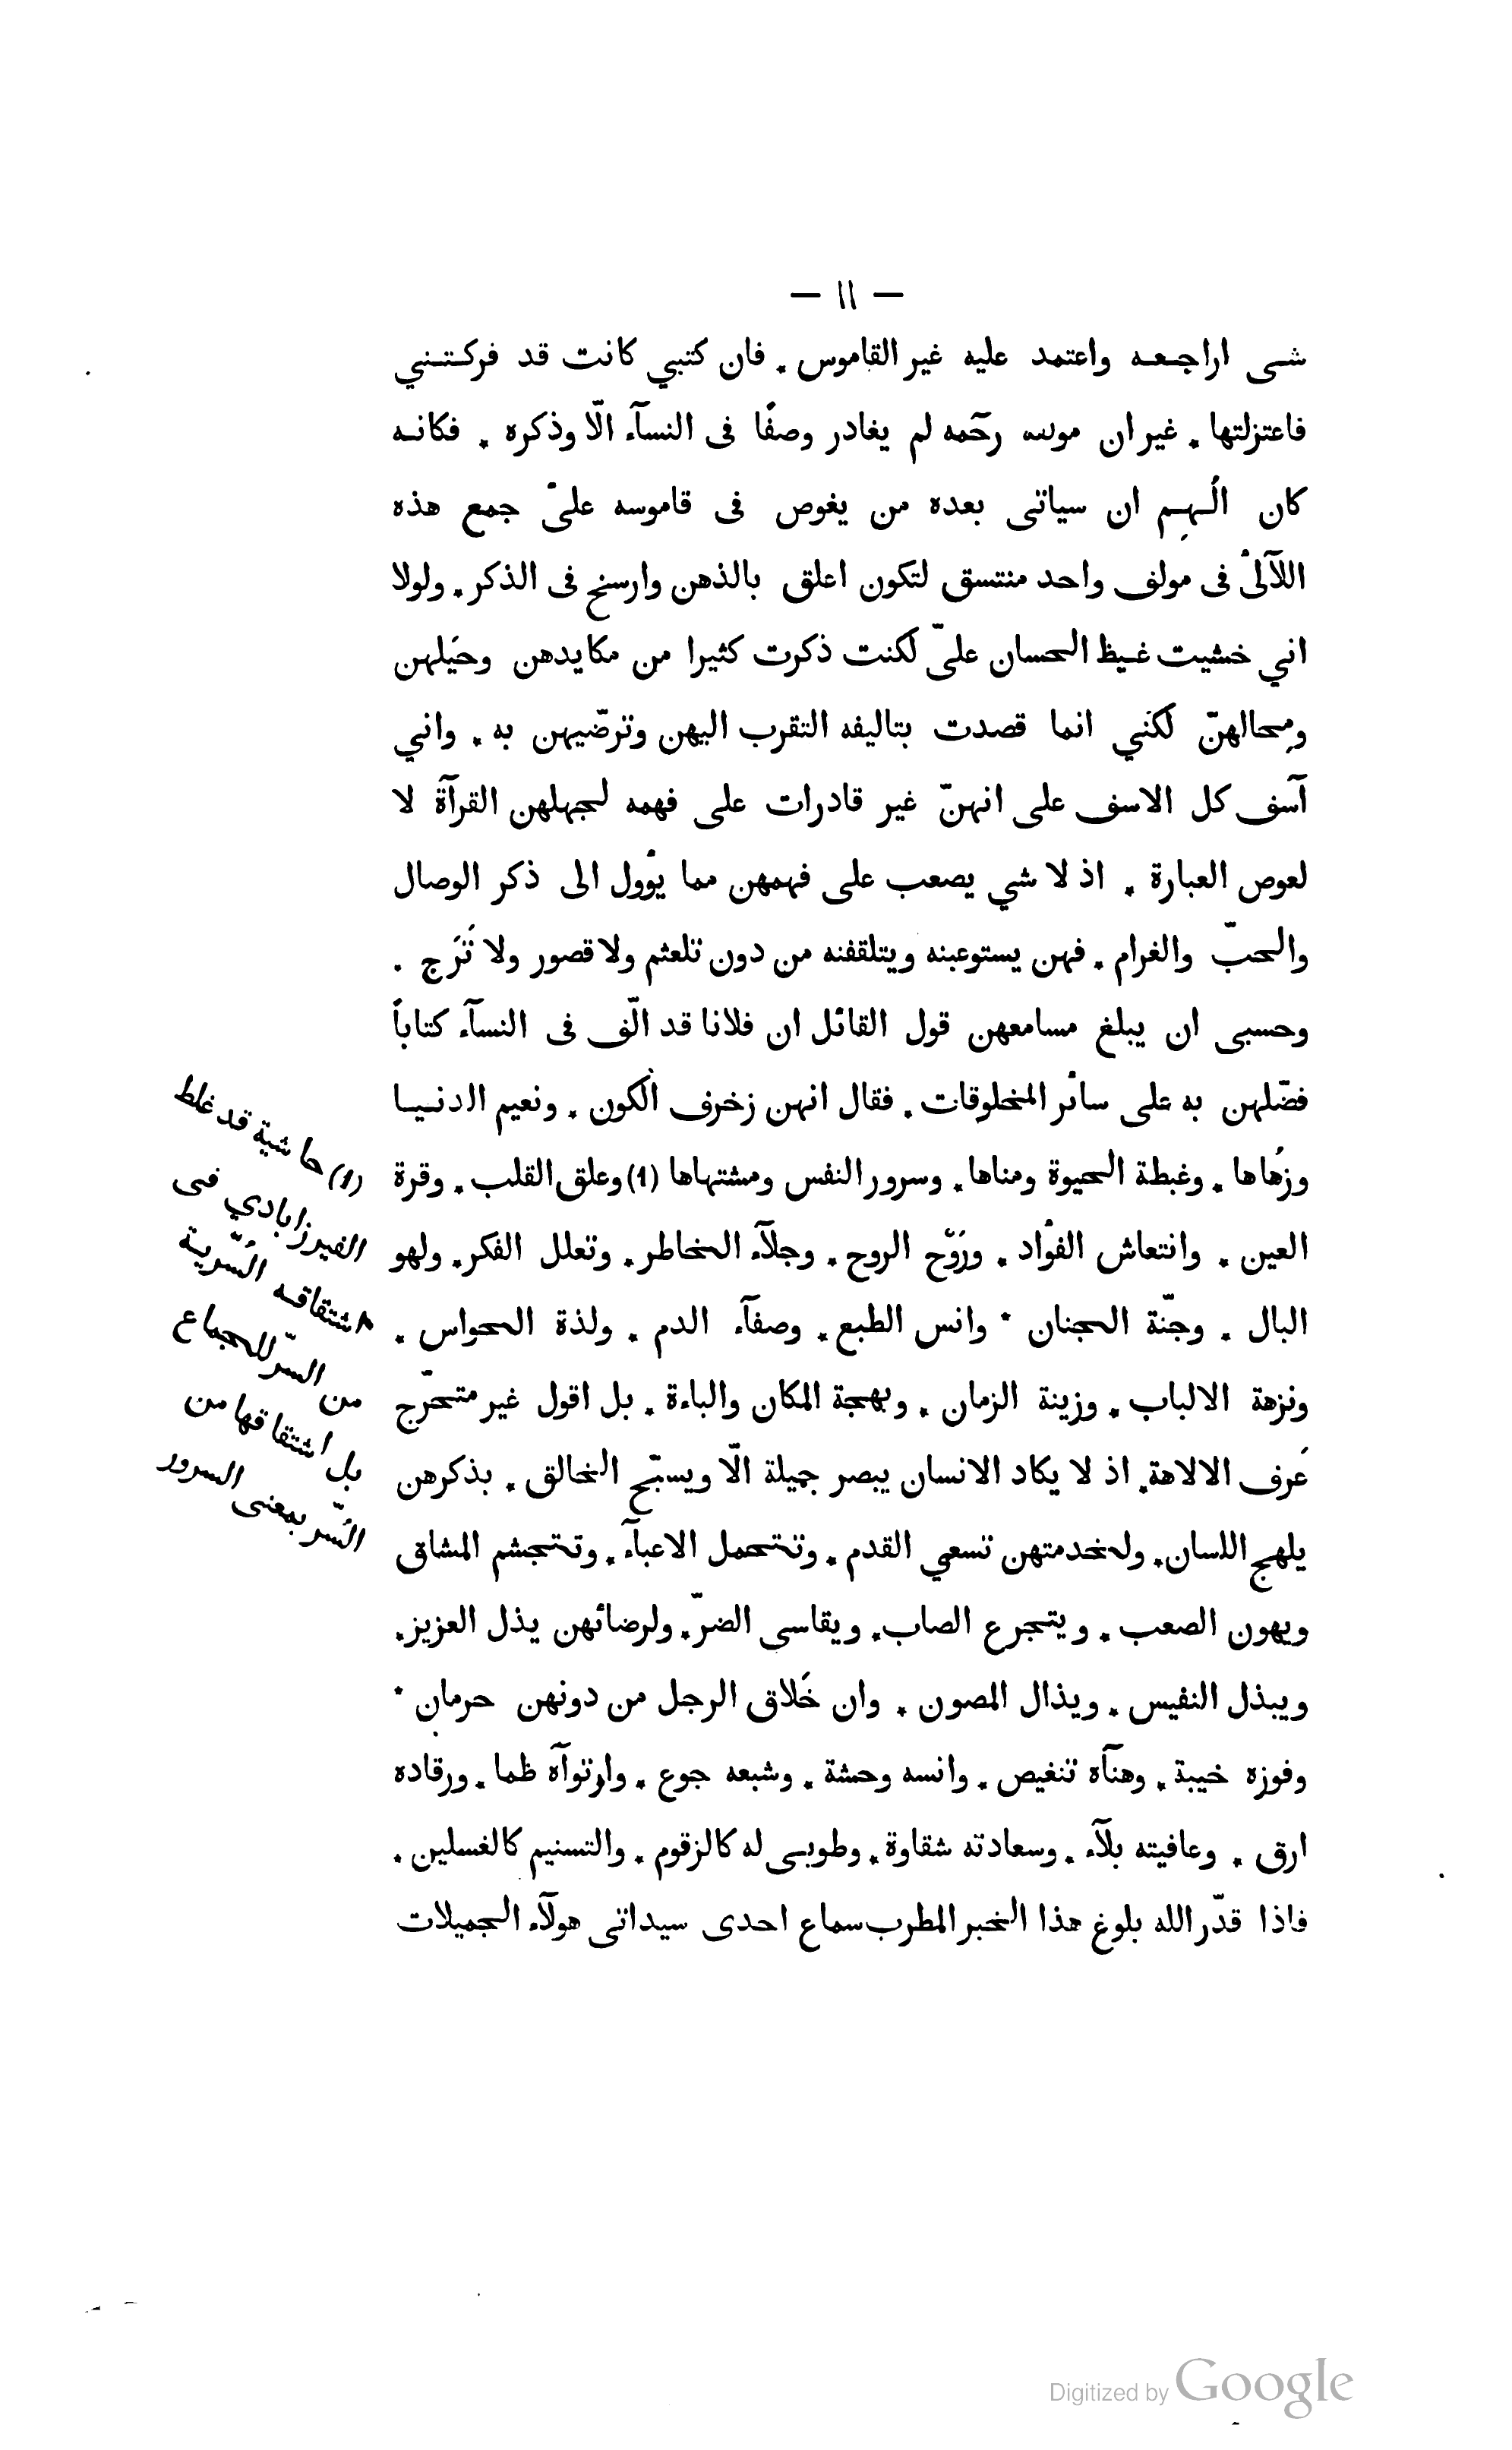 — ١١ —
شى اراجعه واعتمد عليه غير القاموس . فان كتبي كانت قد فركتني
فاعتزلتها . غير ان مولفه رحمه لم يغادر وصفًا فى النسآء الّا وذكره . فكانه
كان اُلهِم ان سياتى بعده من يغوص فى قاموسه علىٰ جمع هذه
اللآلئ فى مولف واحد منتسق لتكون اعلق بالذهن وارسخ فى الذكر . ولولا
اني خشيت غيظ الحسان علىّ لكنت ذكرت كثيرا من مكايدهن وحيَلهن
ومِحالهنّ لكنني انما قصدت بتاليفه التقرب اليهن وترضّيهن به . واني
آسف كل الاسف على انهنّ غير قادرات على فهمه لجهلهن القرآة لا
لعوص العبارة . اذ لا شي يصعب على فهمهن مما يؤول الى ذكر الوصال
والحبّ والغرام . فهن يستوعبنه ويتلقفنه من دون تلعثم ولا قصور ولا تَرَج .
وحسبى ان يبلغ مسامعهن قول القائل ان فلانا قد الّف فى النسآء كتاباً
فضّلهن به على سائر المخلوقات . فقال انهن زخرف الكون . ونعيم الدنيا
وزُهاها . وغبطة الحيوة ومناها . وسرور النفس ومشتهاها (١) وعلق القلب . وقرة
العين . وانتعاش الفؤاد . ورَوْح الروح . وجلآء الخاطر . وتعلل الفكر . ولهو
البال . وجنّة الجنان * وانس الطبع . وصفآء الدم . ولذة الحواس .
ونزهة الالباب . وزينة الزمان . وبهجة المكان والباءة . بل اقول غير متحرّج
عَرف الالاهة . اذ لا يكاد الانسان يبصر جميلة الّا ويسبّح الخالق . بذكرهن
يلهج اللسان . ولخدمتهن تسعي القدم . وتتحمل الاعبآء . وتتجشم المشاق
ويهون الصعب . ويتجرع الصاب . ويقاسى الضرّ . ولرضائهن يذل العزيز .
ويبذل النفيس . ويذال المصون . وان خَلاق الرجل من دونهن حرمان *
وفوزه خيبة . وهنآه تنغيص . وانسه وحشة . وشبعه جوع . وارتوآه ظما . ورقاده
ارق . وعافيته بلآء . وسعادته شقاوة . وطوبى له كالزقوم . والتسنيم كالغسلين .
فاذا قدّر الله بلوغ هذا الخبر المطرب سماع احدى سيداتى هولآء الجميلات
(١) حاشية قد غلط
الفيرزابادي فى
اشتقاقه السُّرية
من السرّ للجماع
بل اشتقاقها من
السُّر بمعنى السرور
Digitized by Google